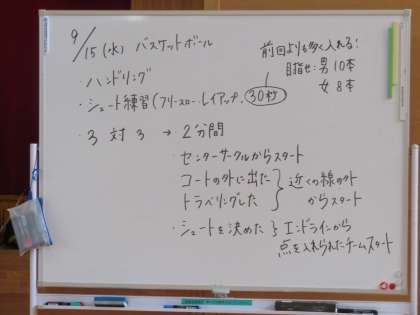 9/15(水) バスケットボール
前回よりも多く入れる!
目指せ:男10本
女 8本
・ハンドリング
・シュート練習(フリースロー・レイアップ・30秒
・3対3 → 2分間
・センターサークルからスタート
コートの外に出た
トラベリングした
近くの線の外
からスタート
・シュートを決めた
エンドラインから
点を入れられたチームスタート